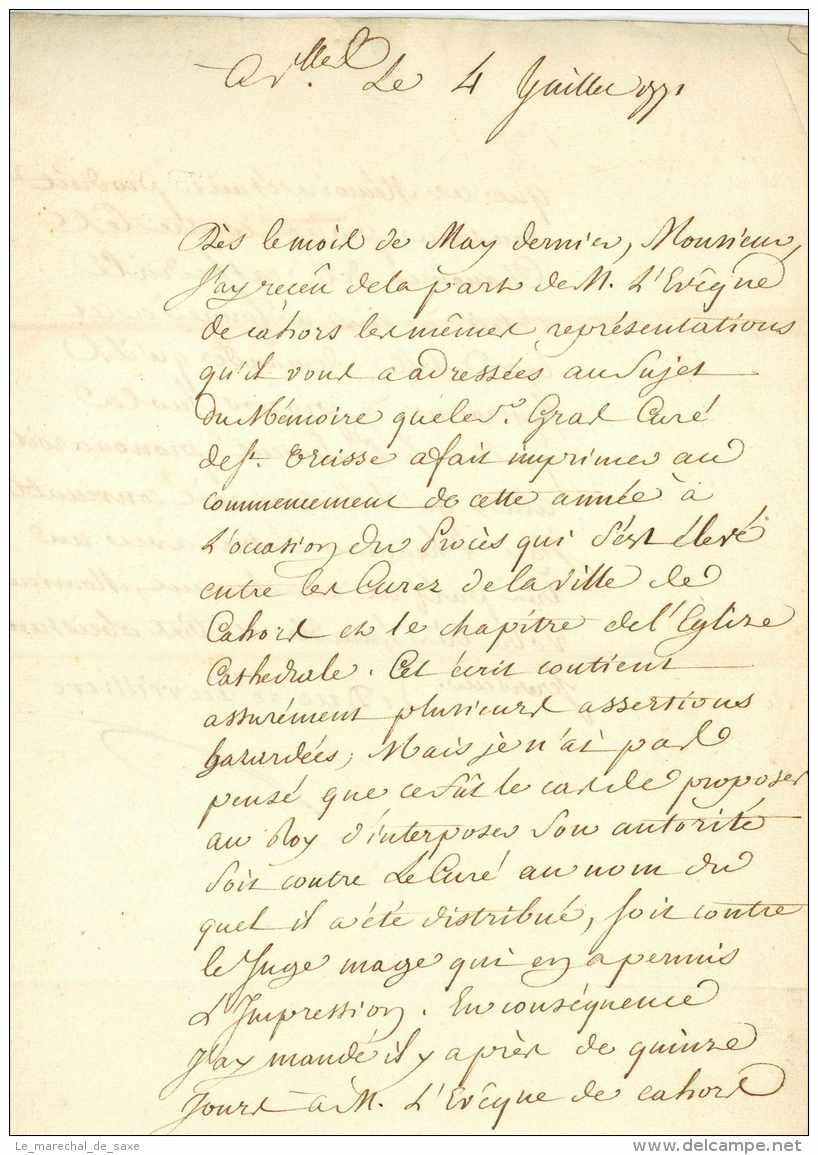 A V.lles Le 4 Juillet 1771
Dès le mois de May dernier, Monsieur,
J'ay receu de la part de M. L'Evêque
de Cahors les mêmes représentations
qu'il vous a adressées au Sujet
du Mémoire que le Sr. Gras Curé
de St. Urcisse a fait imprimer au
commencement de cette année à
L'occasion du Procès qui s'est élevé
entre les Curez de la ville de
Cahors et le chapitre de l'Eglise
Cathedrale. Cet écrit contient
assurément plusieurs assertions
hazardées; Mais je n'ai pas
pensé que ce fût le cas de proposer
au Roy d'interposer Son autorité
Soit contre Le Curé au nom du
quel il a été distribué, soit contre
le Juge mage qui en a permis
L'Impression. En conséquence
J'ay mandé il y a près de quinze
Jours à M. L'Evêque de Cahors
Le_marechal_de_saxe
www.delcampe.net